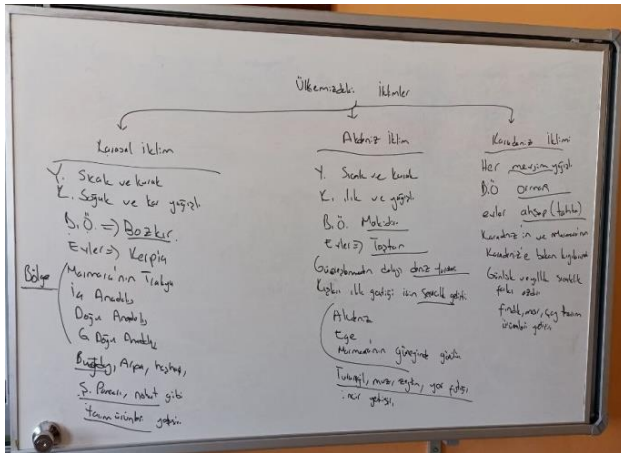 Ülkemizdeki İklimler
Karasal iklim
Y. Sıcak ve kurak
K. Soğuk ve kar yağışlı
B.Ö. => Bozkır.
Evler => Kerpiç
Bölge
Marmara'nın Trakya
İç Anadolu
Doğu Anadolu
G. Doğu Anadolu
Buğday, Arpa, haşhaş,
Ş. Pancarı, nohut gibi
tarım ürünleri yetişir.
Akdeniz İklim
Y. Sıcak ve kurak
K. ılık ve yağışlı
B.Ö. Makidir.
Evler => Taştan
deniz turizmi
Kışları ılık geçtiği için seracılık gelişti
Akdeniz
Ege
Marmara'nın güneyinde
Turunçgil, muz, zeytin,
incir yetişir.
Karadeniz İklimi
Her mevsim yağışlı
B.Ö orman
evler ahşap (tahta)
Karadeniz'in ve Marmara'nın
Karadeniz'e bakan kıyıları
Günlük ve yıllık sıcaklık
farkı azdır
fındık, mısır, çay tarım
ürünleri yetişir